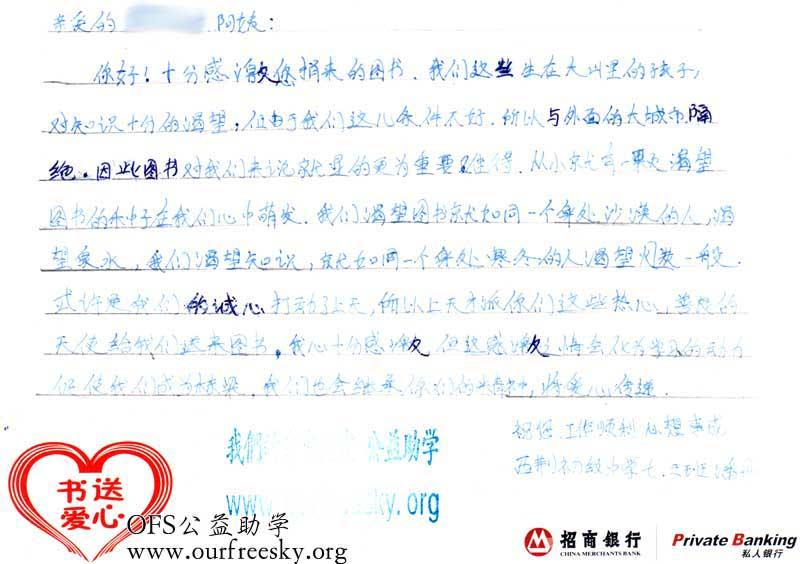 亲爱的 阿姨:
你好!十分感激您捐来的图书。我们这些生在大山里的孩子,
对知识十分的渴望;但由于我们这儿条件不好。所以与外面的大城市隔
绝。因此图书对我们来说就显的更为重要、难得。从小就有一颗渴望
图书的种子在我们心中萌发。我们渴望图书就如同一个身处沙漠的人,渴
望泉水,我们渴望知识,就如同一个身处寒冬的人渴望火热一般。
或许是我们的诚心打动了上天,所以上天才派你们这些热心、善良的
天使给我们送来图书。我心十分感激 但这感激将会化为学习的动力
促使我们成为栋梁。我们也会继承你们的精神,将爱心传递。
祝您 工作顺利 心想事成
西荆初级中学七.
我们 公益助学
www. esky.org
书送
爱心
OFS公益助学
www.ourfreesky.org
招商银行
CHINA MERCHANTS BANK
Private Banking
私人银行